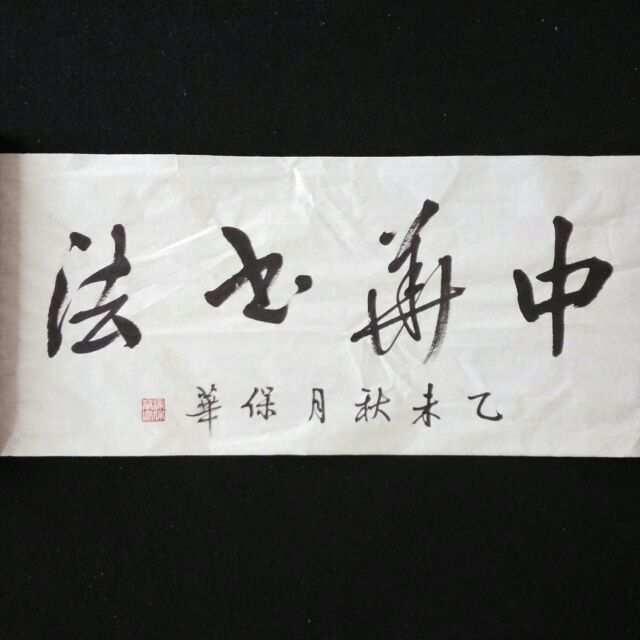 中華书法
乙未秋月保華